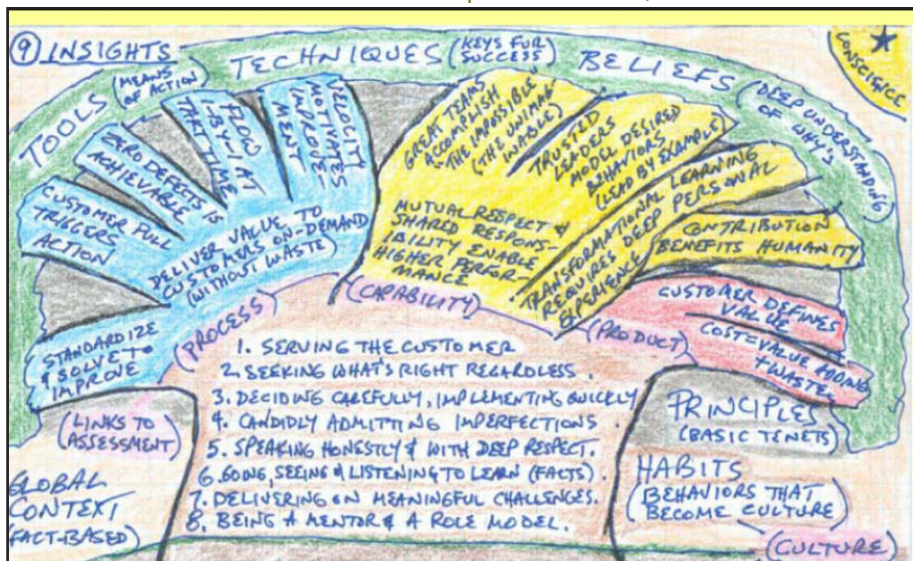 9 INSIGHTS
TOOLS
(MEANS
OF ACTION)
TECHNIQUES
(KEYS FOR
SUCCESS)
BELIEFS
(DEEP UNDERSTANDING
OF WHY'S)
CONSCIENCE
STANDARDIZE
& SOLVE TO
IMPROVE
CUSTOMER PULL
TRIGGERS
ACTION
ZERO DEFECTS IS
ACHIEVABLE
FLOW
1-BY-1 AT
TAKT TIME
VELOCITY
MOTIVATES
IMPROVE-
MENT
DELIVER VALUE TO
CUSTOMERS ON-DEMAND
(WITHOUT WASTE)
GREAT TEAMS
ACCOMPLISH
"THE IMPOSSIBLE
(THE UNIMAG
INABLE)
TRUSTED
LEADERS
MODEL DESIRED
BEHAVIORS
(LEAD BY EXAMPLE)
MUTUAL RESPECT &
SHARED RESPONS-
IBILITY ENABLE
HIGHER PERFOR-
MANCE
TRANSFORMATIONAL LEARNING
REQUIRES DEEP PERSONAL
EXPERIENCE
CONTRIBUTION
BENEFITS HUMANITY
CUSTOMER DEFINES
VALUE
COST=VALUE ADDING
+ WASTE
(PROCESS)
(CAPABILITY)
(PRODUCT)
1. SERVING THE CUSTOMER
2. SEEKING WHAT'S RIGHT REGARDLESS.
3. DECIDING CAREFULLY, IMPLEMENTING QUICKLY
4. CANDIDLY ADMITTING IMPERFECTIONS.
5. SPEAKING HONESTLY & WITH DEEP RESPECT.
6. GOING, SEEING & LISTENING TO LEARN (FACTS).
7. DELIVERING ON MEANINGFUL CHALLENGES.
8. BEING A MENTOR & A ROLE MODEL.
(LINKS TO
ASSESSMENT)
GLOBAL
CONTEXT
(FACT-BASED)
PRINCIPLES
(BASIC TENETS)
HABITS
(BEHAVIORS THAT
BECOME CULTURE)
(CULTURE)